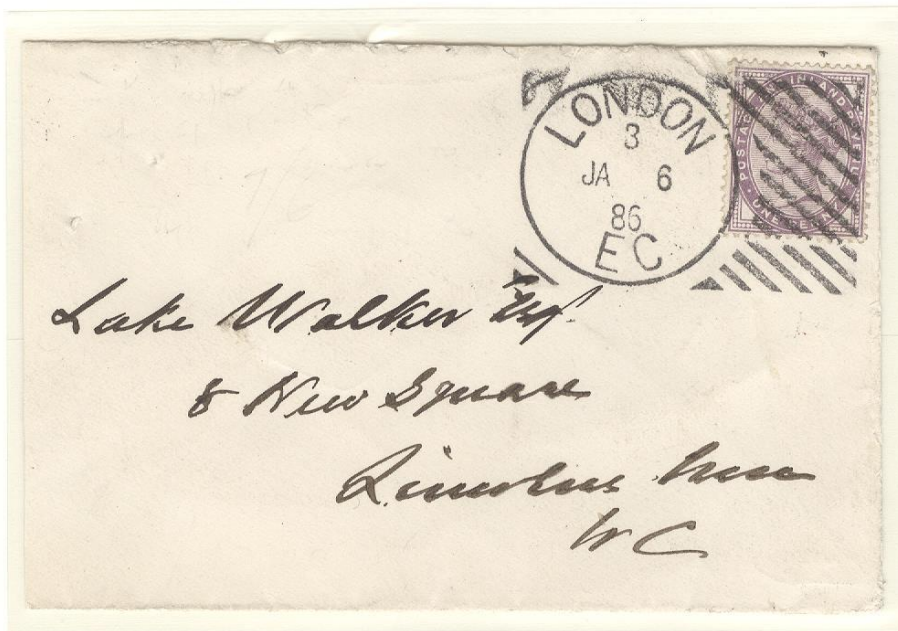 LONDON
3
JA 6
86
EC
POSTAGE AND INLAND REVENUE
ONE PENNY
Lake Walker Esq.
8 New Square
Lincolns Inn
W C